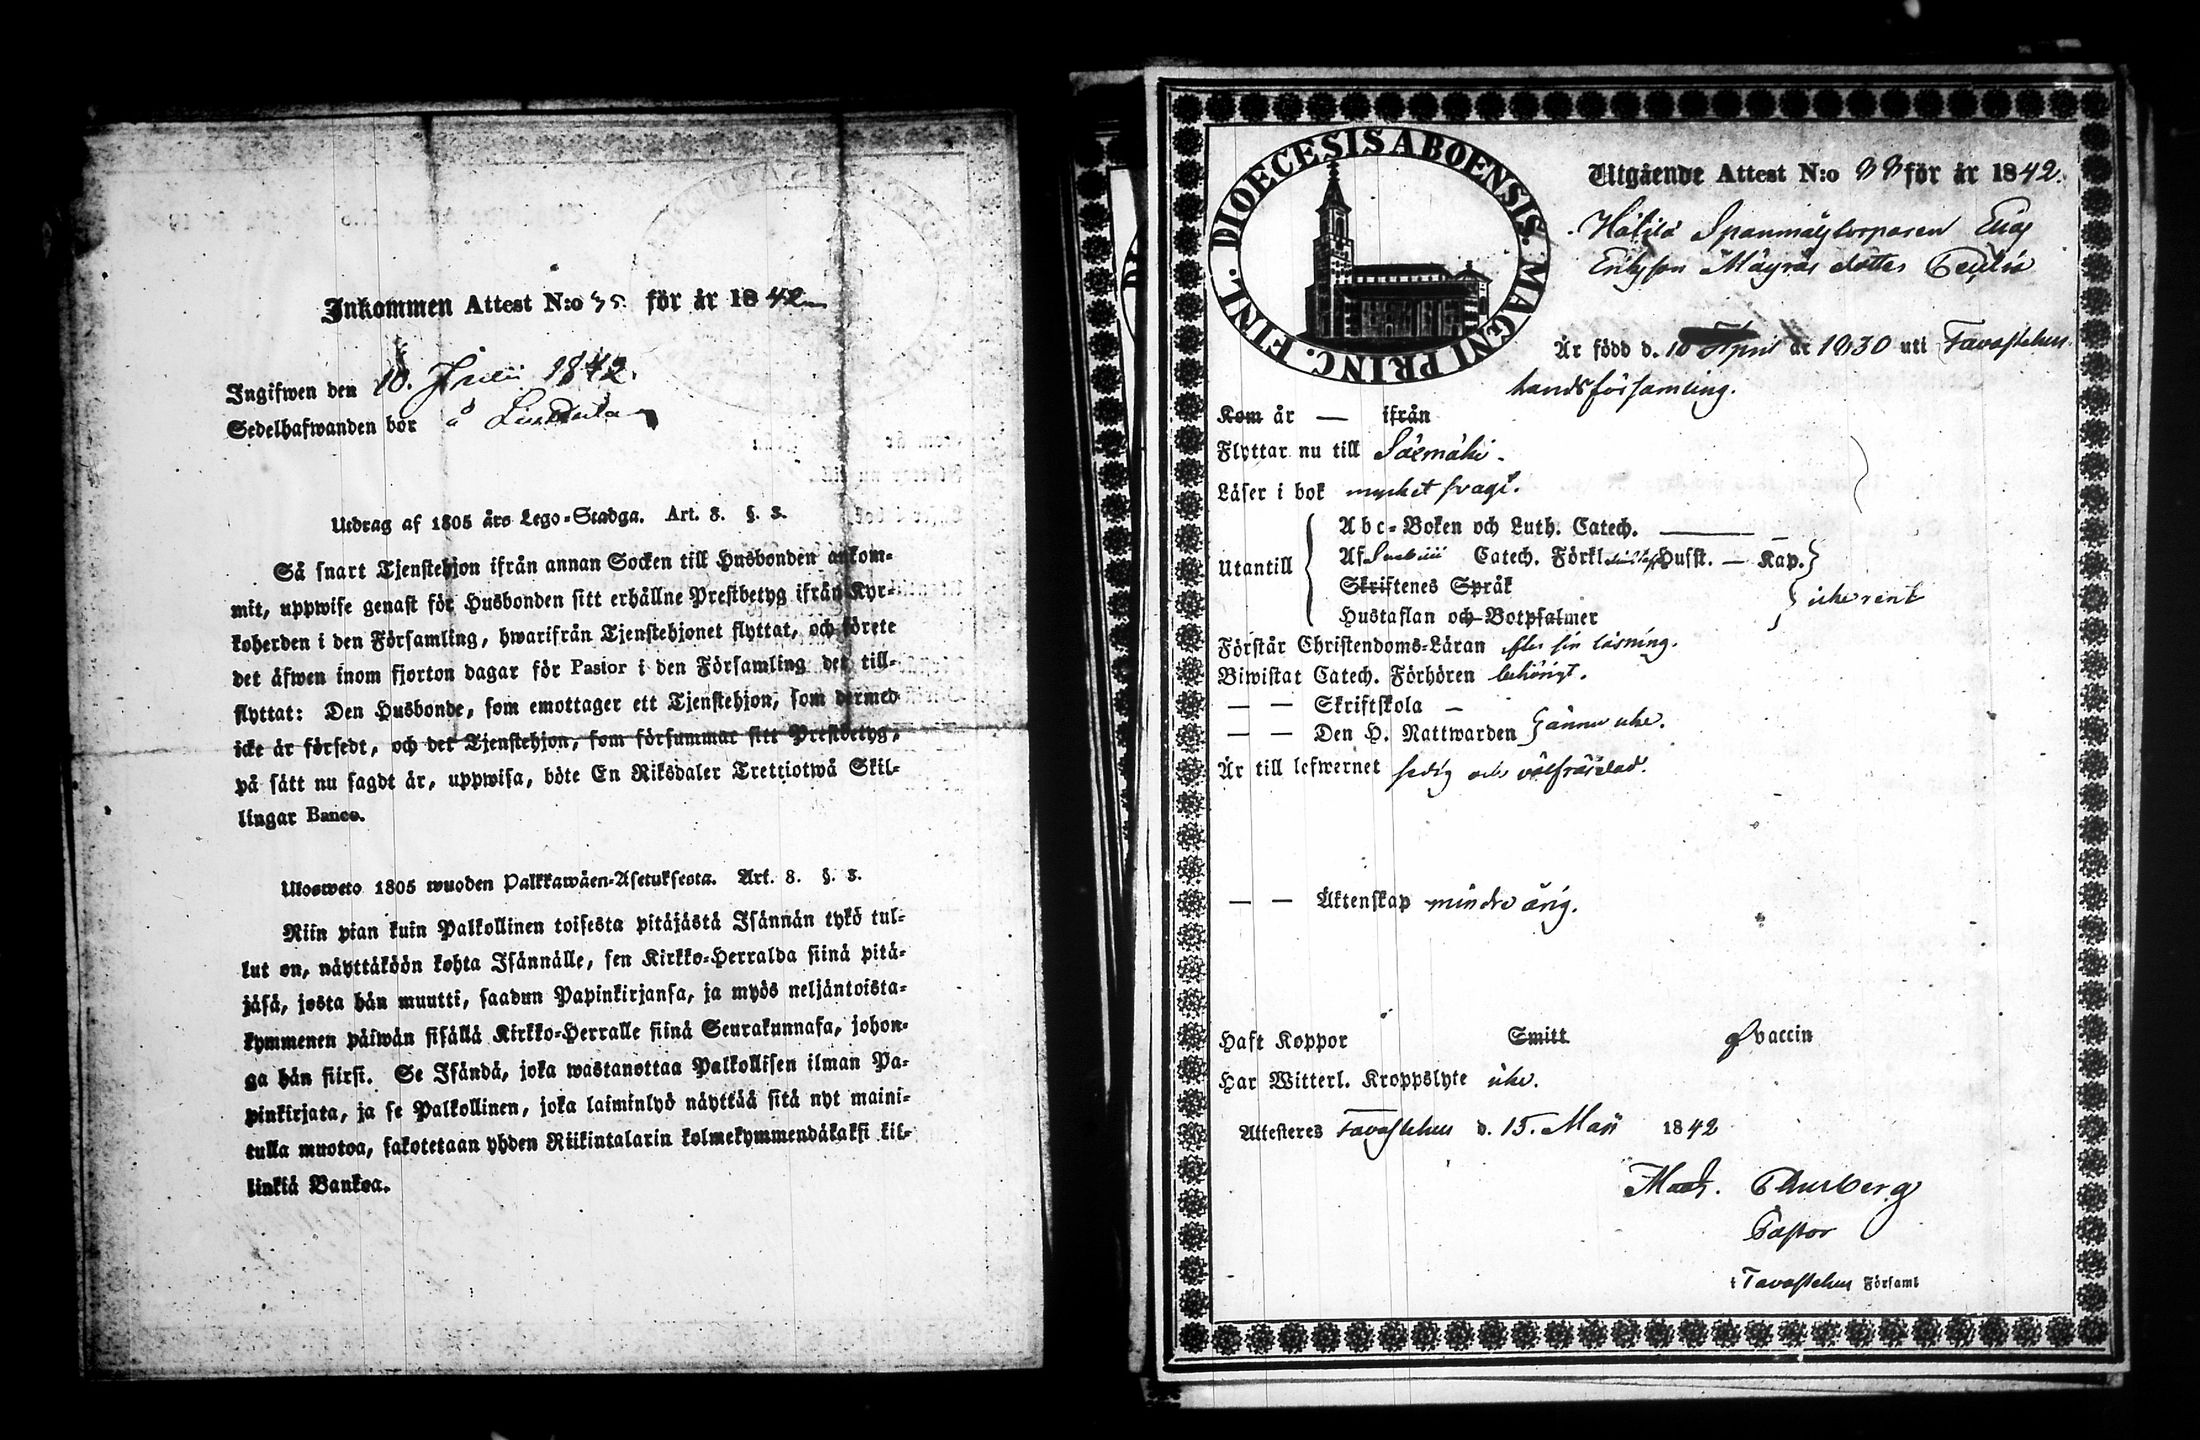 Inkommen Attest N:o 35. för år 1842
Ingifwen den 10. Julii 1842.
Sedelhafwanden bor å
Utdrag af 1805 års Lego-Stadga. Art. 8. §. 3.
Så snart Tjenstehjon ifrån annan Socken till Husbonden ankom-
mit, uppwise genast för Husbonden sitt erhållne Prestbetyg ifrån Kyr-
koherden i den Församling, hwarifrån Tjenstehjonet flyttat, och förete
det äfwen inom fjorton dagar för Pastor i den Församling det till-
flyttat: Den Husbonde, som emottager ett Tjenstehjon, som dermed
icke är försedt, och det Tjenstehjon, som försummar sitt Prestbetyg,
på sätt nu sagdt är, uppwisa, böte En Riksdaler Trettiotwå Skil-
lingar Banco.
Ulosweto 1805 wuoden Palkkawäen-Asetuksesta. Art. 8. §. 3.
Niin pian kuin Palkollinen toisesta pitäjästä Isännän tykö tul-
lut on, näyttäköön kohta Isännälle, sen Kirkko-Herralda siinä pitä-
jäsä, josta hän muutti, saadun Papinkirjansa, ja myös neljäntoista-
kymmenen päiwän sisällä Kirkko-Herralle siinä Seurakunnasa, johon-
ga hän siirsi. Se Isändä, joka wastanottaa Palkollisen ilman Pa-
pinkirjata, ja se Palkollinen, joka laiminlyö näyttää sitä nyt maini-
tulla muotoa, sakotetaan yhden Riikintalarin kolmekymmendäkaksi kil-
linkiä Bankoa.
FINL. DIOECESIS ABOENSIS. MAGNI PRINC.
Utgående Attest N:o 88 för år 1842.
Hätilä Spanmålstorparen
Eriksson Mäyräs dotter Cecilia
Är född d. 10 April år 1830 uti Tavastehus
landsförsamling.
Kom år — ifrån
Flyttar nu till Säxmäki.
Läser i bok mycket svagt.
Utantill
Abc-Boken och Luth. Catech. —
Af Svebilii Catech. Förkl. Husst. — Kap.
Skriftenes Språk
Hustaflan och Botpsalmer
icke rent
Förstår Christendoms-Läran efter sin läsning.
Biwistat Catech. Förhören behörigt.
— — Skriftskola —
— — Den H. Nattwarden ännu icke.
Är till lefwernet sedig och välfrägdad.
— — Äktenskap minderårig.
Haft Koppor Smitt vaccin
Har Witterl. Kroppslyte icke.
Attesteres Tavastehus d. 15. Maji 1842
Thurberg
Pastor
i Tavastehus Församl